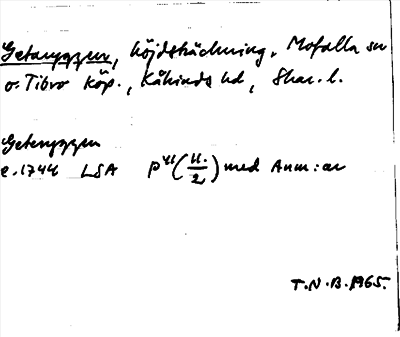 Getaryggen, höjdsträckning, Mofalla sn
o. Tibro köp., Kåkinds hd, Skar. l.
Getaryggen
c. 1744 LSA P41(11./2) med Anm:ar
T.N.B. 1965.